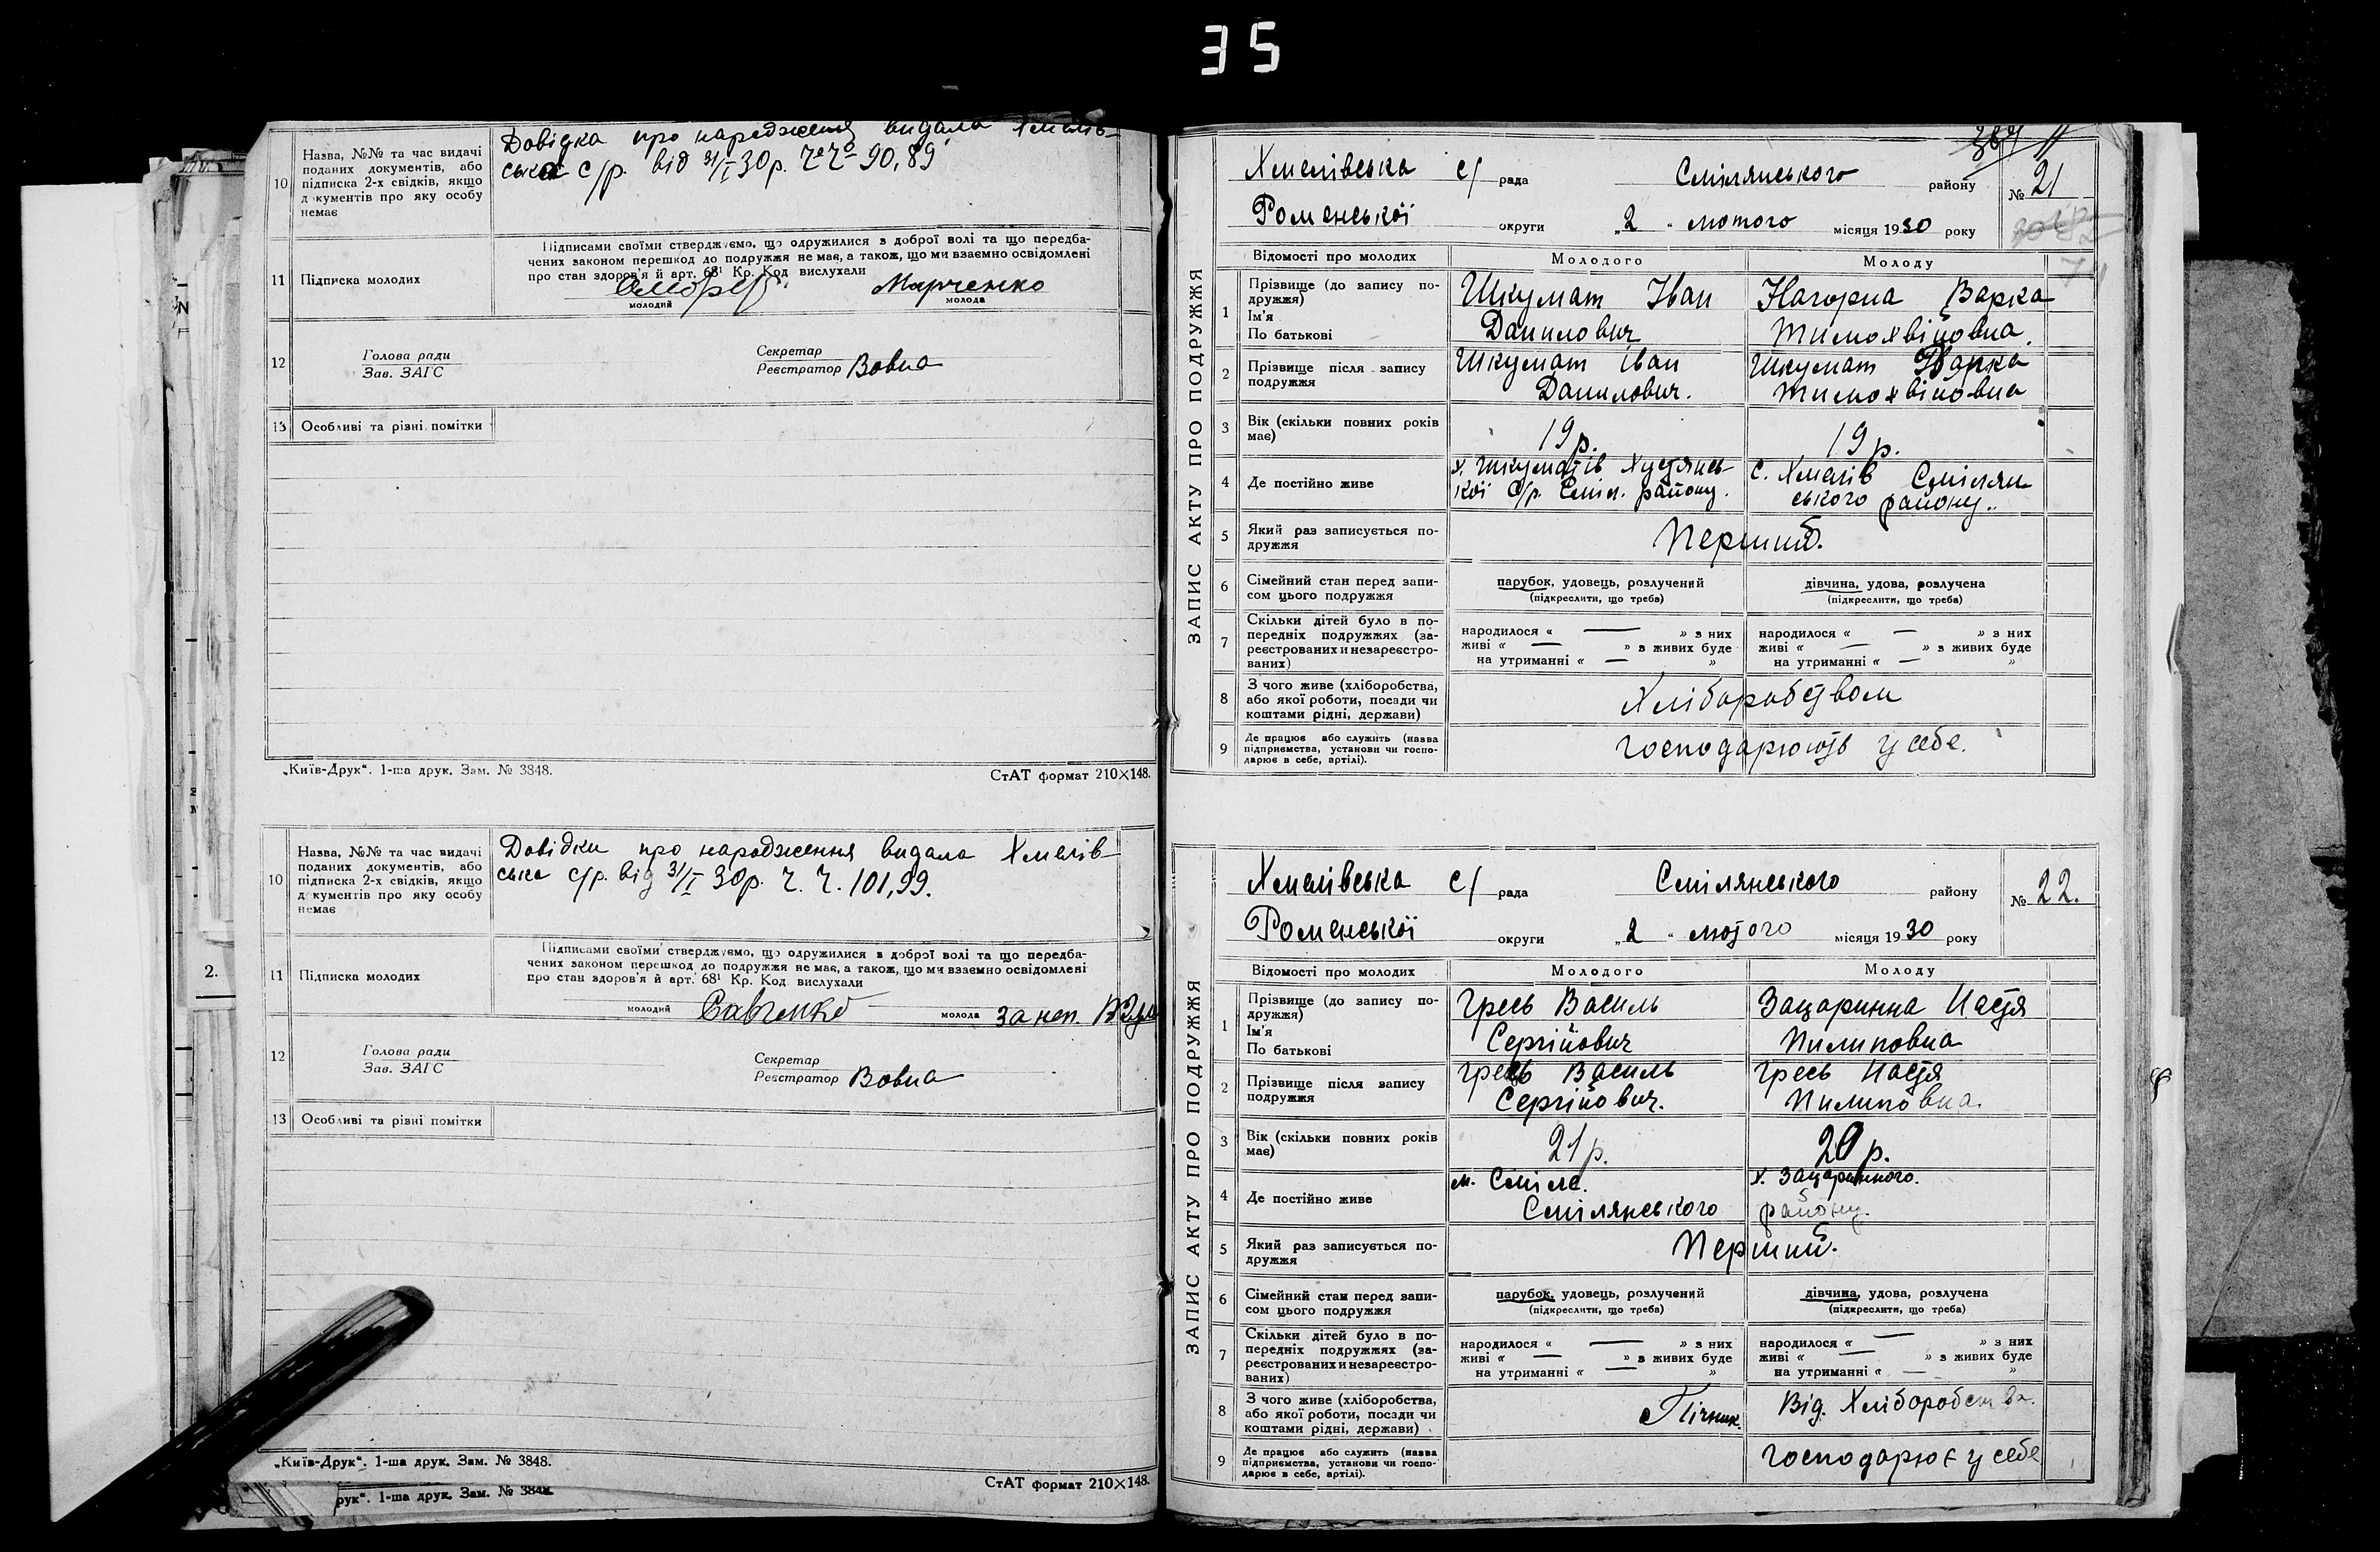 35
10
Назва, №№ та час видачі
поданих документів, або
підписка 2-х свідків, якщо
документів про яку особу
немає
Довідка про народження видала Хмелів-
ська с/р. від 31/I 30р. Ч.Ч. 90,89
11
Підписка молодих
Підписами своїми стверджуємо, що одружилися з доброї волі та що передба-
чених законом перешкод до подружжя не має, а також, що ми взаємно освідомлені
про стан здоров'я й арт. 68¹ Кр. Код вислухали
Марченко
молодий
молода
12
Голова ради
Зав. ЗАГС
Секретар
Реєстратор Вовна
13
Особливі та різні помітки
„Київ-Друк“. 1-ша друк. Зам. № 3848.
СтАТ формат 210×148.
10
Назва, №№ та час видачі
поданих документів, або
підписка 2-х свідків, якщо
документів про яку особу
немає
Довідки про народження видала Хмелів-
ська с/р. від 31/I 30р. Ч. Ч. 101,99.
11
Підписка молодих
Підписами своїми стверджуємо, що одружилися з доброї волі та що передба-
чених законом перешкод до подружжя не має, а також, що ми взаємно освідомлені
про стан здоров'я й арт. 68¹ Кр. Код вислухали
молодий Савченко молода за неп.
12
Голова ради
Зав. ЗАГС
Секретар
Реєстратор Вовна
13
Особливі та різні помітки
„Київ-Друк“. 1-ша друк. Зам. № 3848.
СтАТ формат 210×148.
рук“. 1-ша друк. Зам. № 3848.
2.
ЗАПИС АКТУ ПРО ПОДРУЖЖЯ
Хмелівська с/ рада Смілянського району № 21
Роменської округи „2“ лютого місяця 1930 року
Відомості про молодих
Молодого
Молоду
1
Прізвище (до запису по-
дружжя)
Ім'я
По батькові
Шкумат Іван
Данилович
Нагорна Варка
Тимохвійовна.
2
Прізвище після запису
подружжя
Шкумат Іван
Данилович.
Шкумат Варка
Тимохвійовна
3
Вік (скільки повних років
має)
19р.
19р.
4
Де постійно живе
х. Шкуматів Хустянсь-
кої с/р. Сміл. району.
с. Хмелів Смілян
ського району.
5
Який раз записується по-
дружжя
Перший.
6
Сімейний стан перед запи-
сом цього подружжя
парубок, удовець, розлучений
(підкреслити, що треба)
дівчина, удова, розлучена
(підкреслити, що треба)
7
Скільки дітей було в по-
передніх подружжях (за-
реєстрованих и незареєстро-
ваних)
народилося « — » з них
живі « — » з живих буде
на утриманні « — »
народилося « — » з них
живі « — » з живих буде
на утриманні « — »
8
З чого живе (хліборобства,
або якої роботи, посади чи
коштами рідні, держави)
Хліборобством
9
Де працює або служить (назва
підприємства, установи чи госпо-
дарює в себе, артілі).
господарюють у себе.
ЗАПИС АКТУ ПРО ПОДРУЖЖЯ
Хмелівська с/ рада Смілянського району № 22.
Роменської округи „2“ лютого місяця 1930 року
Відомості про молодих
Молодого
Молоду
1
Прізвище (до запису по-
дружжя)
Ім'я
По батькові
Гресь Василь
Сергійович
Зацаринна Настя
Пилиповна
2
Прізвище після запису
подружжя
Гресь Василь
Сергійович.
Гресь Настя
Пилиповна.
3
Вік (скільки повних років
має)
21р.
20р.
4
Де постійно живе
м. Сміле.
Смілянського
х. Зацаринного.
району.
5
Який раз записується по-
дружжя
Перший.
6
Сімейний стан перед запи-
сом цього подружжя
парубок, удовець, розлучений
(підкреслити, що треба)
дівчина, удова, розлучена
(підкреслити, що треба)
7
Скільки дітей було в по-
передніх подружжях (за-
реєстрованих и незареєстро-
ваних)
народилося « — » з них
живі « — » з живих буде
на утриманні « — »
народилося « — » з них
живі « — » з живих буде
на утриманні « — »
8
З чого живе (хліборобства,
або якої роботи, посади чи
коштами рідні, держави)
Пічник.
Від. Хліборобства.
9
Де працює або служить (назва
підприємства, установи чи госпо-
дарює в себе, артілі).
господарює у себе